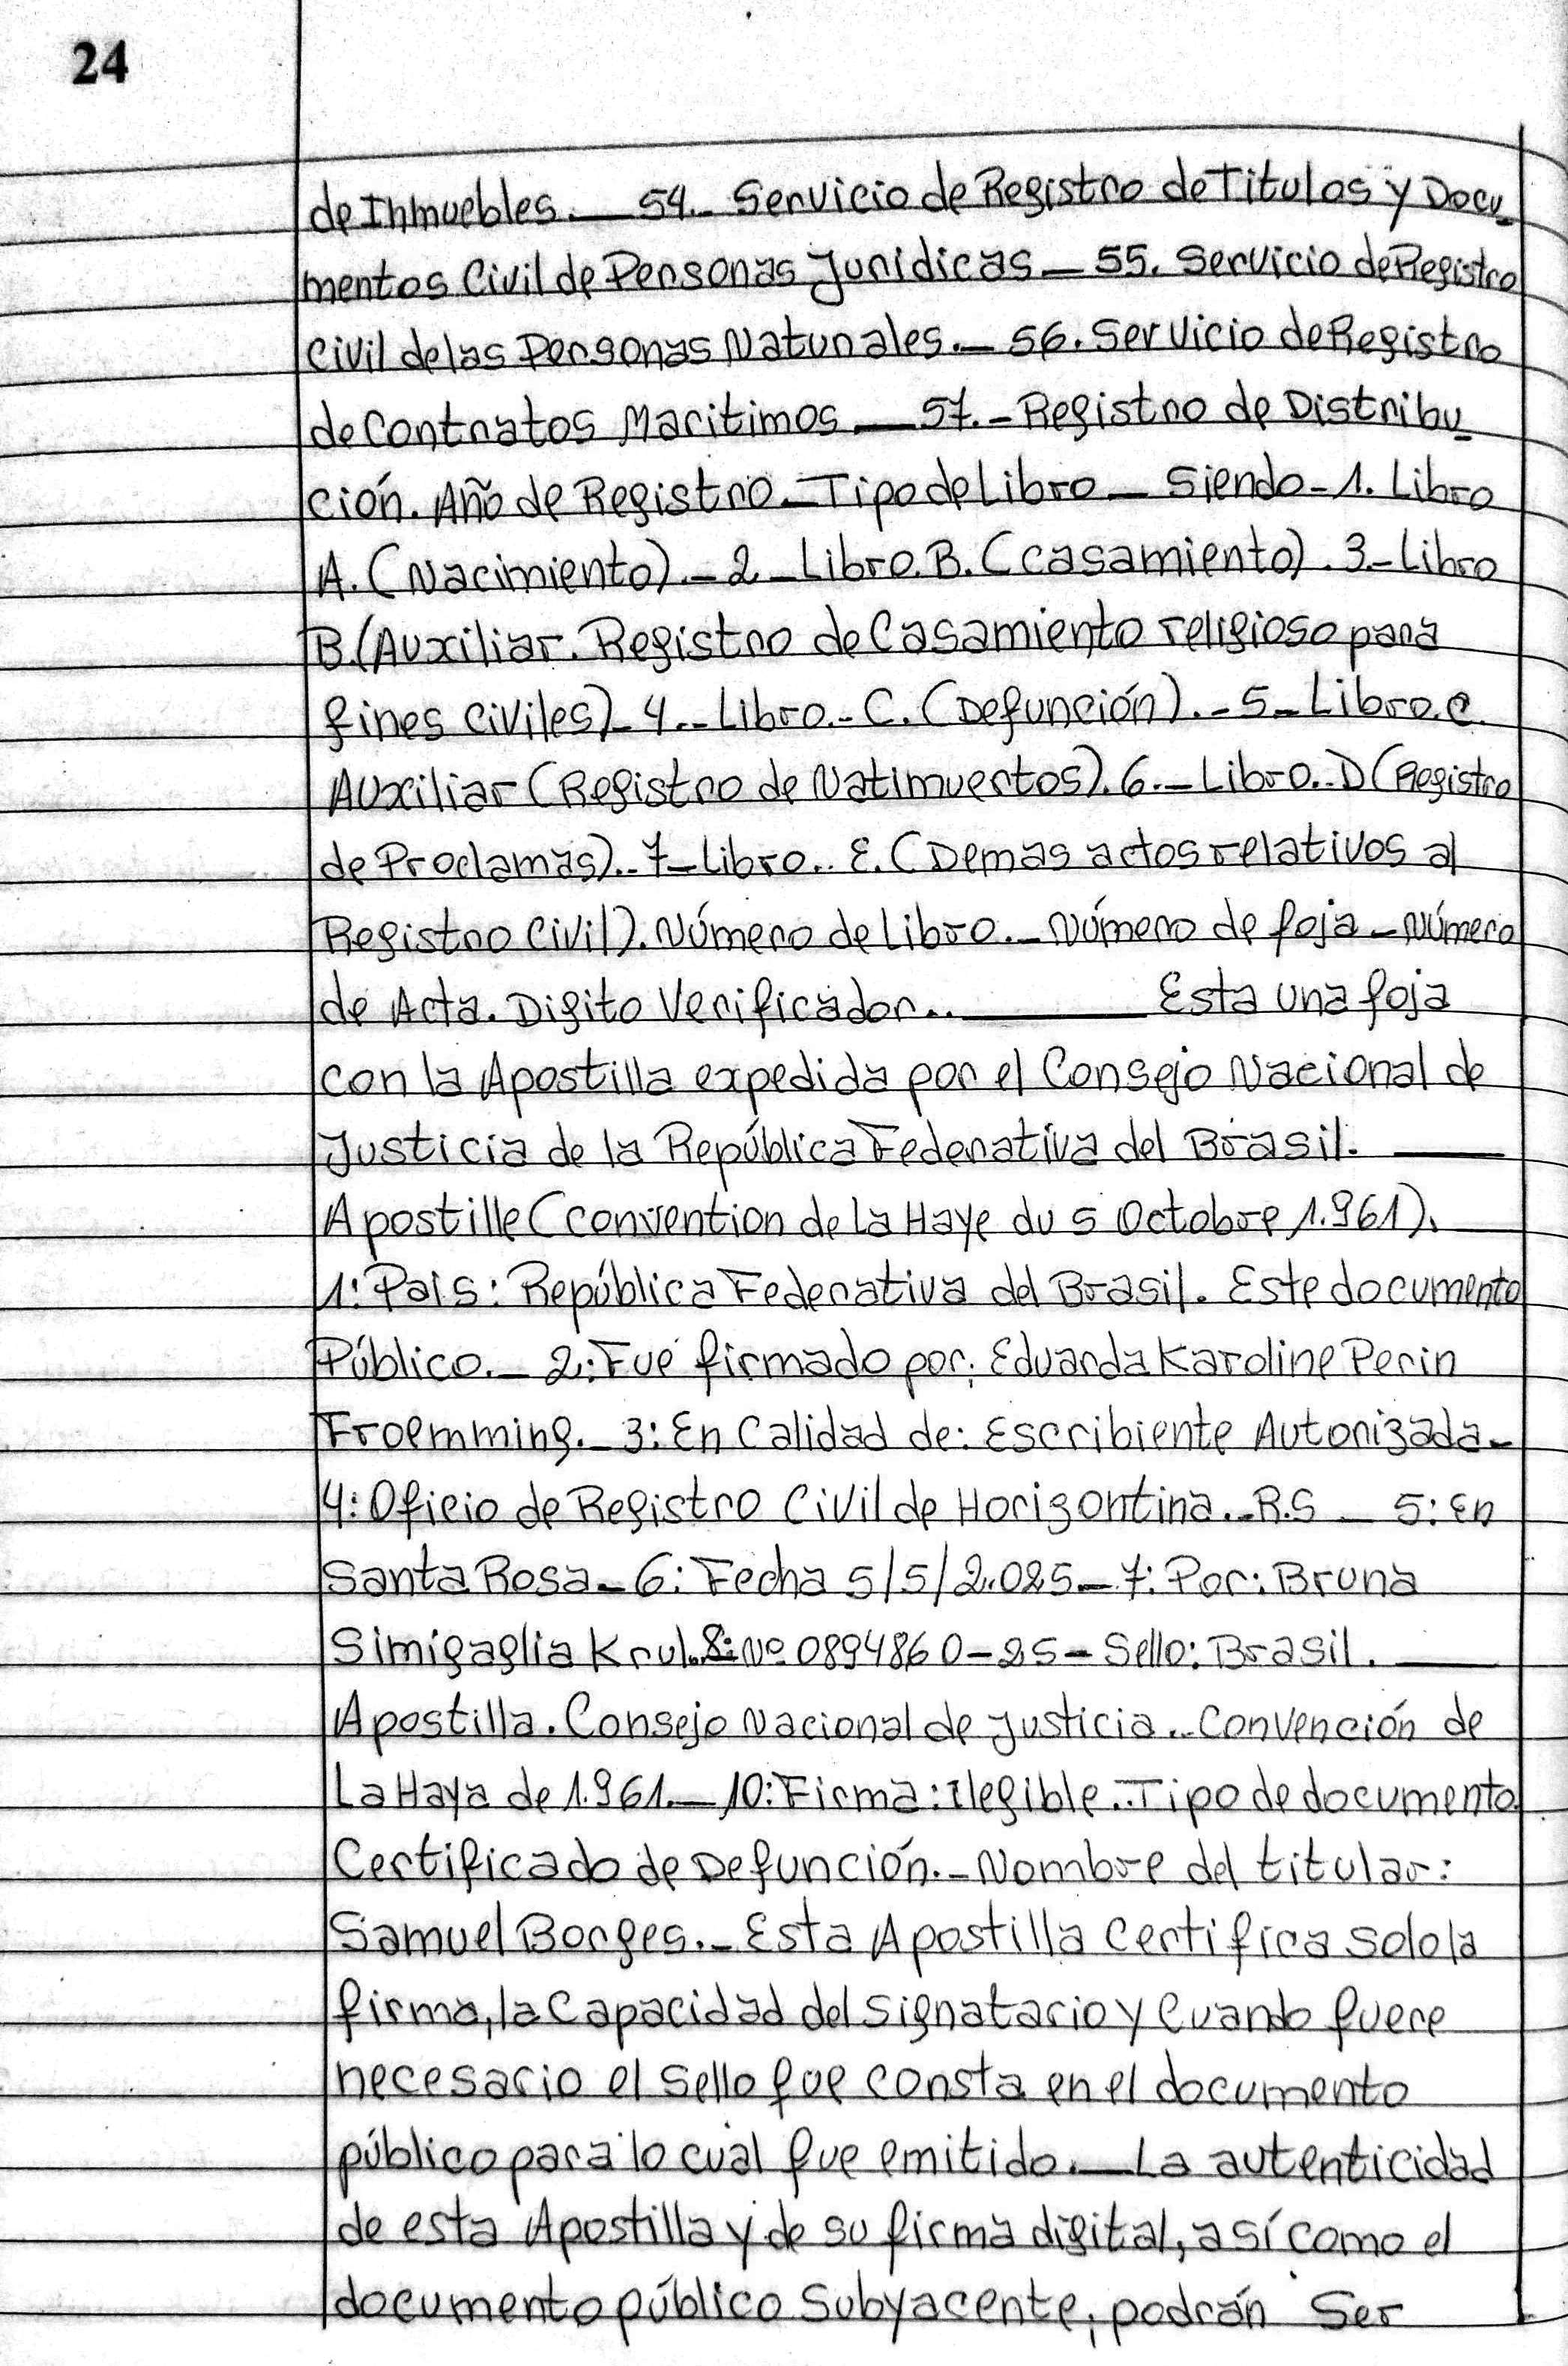 24
de Inmuebles.__ 54.- Servicio de Registro de Titulos y Docu_
mentos Civil de Personas Juridicas _ 55. Servicio de Registro
Civil de las Personas Naturales._ 56. Servicio de Registro
de Contratos Maritimos __ 57.- Registro de Distribu_
ción. Año de Registro._ Tipo de Libro _ Siendo - 1. Libro
A. (Nacimiento)._ 2 _ Libro. B. (casamiento). 3_ Libro
B. (Auxiliar. Registro de Casamiento religioso para
fines civiles)_ 4._ Libro.- C. (Defunción).- 5_ Libro. C.
Auxiliar (Registro de Natimuertos). 6._ Libro.. D (Registro
de Proclamas).. 7_ Libro.. E. (Demas actos relativos al
Registro Civil). Número de Libro._ Número de foja _ Número
de Acta. Digito Verificador.. ______ Esta una foja
con la Apostilla expedida por el Consejo Nacional de
Justicia de la República Federativa del Brasil. ____
Apostille (convention de La Haye du 5 Octobre 1.961). __
1: Pais: República Federativa del Brasil. Este documento
Público._ 2: Fue firmado por: Eduarda Karoline Perin
Froemming._ 3: En Calidad de: Escribiente Autorizada_
4: Oficio de Registro Civil de Horizontina.._ R.S _ 5: En
Santa Rosa _ 6: Fecha 5/5/2.025 _ 7: Por: Bruna
Simigaglia Krul. 8: Nº 0894860-25 - Sello: Brasil. ____
Apostilla. Consejo Nacional de Justicia.. Convención de
La Haya de 1.961.__ 10: Firma: Ilegible.. Tipo de documento.
Certificado de Defunción._ Nombre del titular:
Samuel Borges._ Esta Apostilla Certifica solo la
firma, la Capacidad del Signatario y Cuando fuere
necesario el Sello que consta en el documento
público para lo cual fue emitido.__ La autenticidad
de esta Apostilla y de su firma digital, así como el
documento público Subyacente, podrán Ser